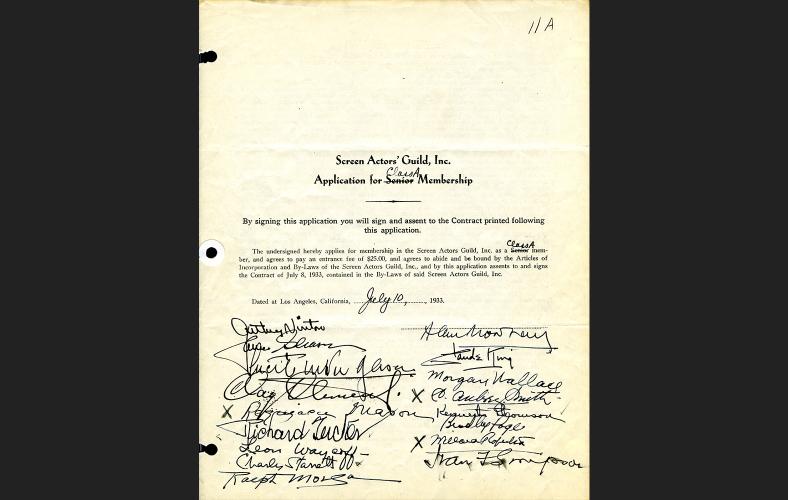 11 A
Screen Actors' Guild, Inc.
Class A
Application for Senior Membership
By signing this application you will sign and assent to the Contract printed following
this application.
Class A
The undersigned hereby applies for membership in the Screen Actors Guild, Inc. as a Senior mem-
ber, and agrees to pay an entrance fee of $25.00, and agrees to abide and be bound by the Articles of
Incorporation and By-Laws of the Screen Actors Guild, Inc., and by this application assents to and signs
the Contract of July 8, 1933, contained in the By-Laws of said Screen Actors Guild, Inc.
Dated at Los Angeles, California, July 10, 1933.
Alan Mowbray
Claude King
Morgan Wallace
X Mason
X C. Aubrey Smith
Kenneth Thomson
Richard Tucker
Bradley Page
Leon Waycoff
X
Charles Starrett
Ivan Simpson
Ralph Morgan